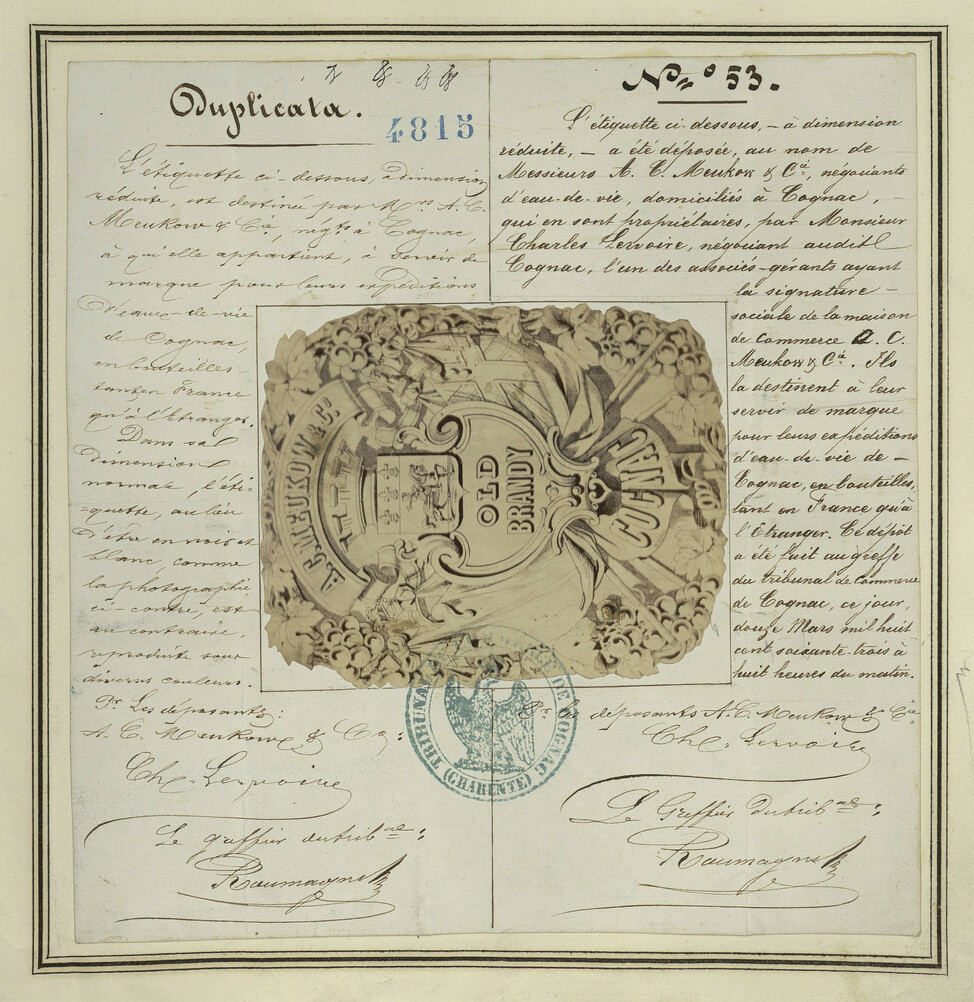 Duplicata.
4815
L'étiquette ci-dessous, à dimension
réduite, est destinée par Mrs A. C.
Meukow & Cie, négts à Cognac,
à qui elle appartient, à servir de
marque pour leurs expéditions
d'eaux-de-vie
de Cognac,
en bouteilles
tant en France
qu'à l'Etranger.
Dans sa
dimension
normale, l'éti-
=quette, au lieu
d'être en noir et
blanc comme
la photographie
ci-contre, est
au contraire,
reproduite sous
diverses couleurs.
Pr Les déposants:
A. C. Meukow & Co:
Chs Lervoire
Le greffier du tribal:
Roumagne
No 53.
L'étiquette ci-dessous, – à dimension
réduite, – a été déposée, au nom de
Messieurs A. C. Meukow & Cie, négociants
d'eau-de-vie, domiciliés à Cognac, –
qui en sont propriétaires, par Monsieur
Charles Lervoire, négociant audit
Cognac, l'un des associés-gérants ayant
la signature –
sociale de la maison
de commerce A. C.
Meukow & Cie. Ils
la destinent à leur
servir de marque
pour leurs expéditions
d'eau-de-vie de –
Cognac, en bouteilles,
tant en France qu'à
l'Etranger. Ce dépôt
a été fait au greffe
du tribunal de commerce
de Cognac, ce jour,
douze Mars mil huit
cent soixante-trois à
huit heures du matin.
Pr les déposants A. C. Meukow & Cie
Chs Lervoire
Le Greffier du tribal:
Roumagne
A. C. MEUKOW & Co.
OLD
BRANDY
COGNAC
TRIBUNAL DE COGNAC
(CHARENTE)